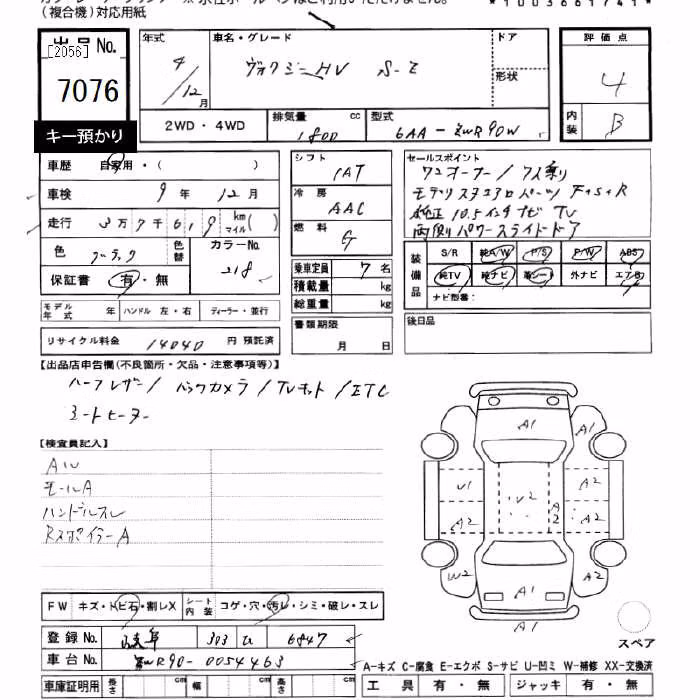 (複合機)対応用紙
*1003661741*
出品 No.
[2056]
7076
キー預かり
年式 車名・グレード ドア 評価点
4/12月 ヴォクシーHV S-Z 形状 4
2WD・4WD 排気量 cc 1800 型式 6AA-ZWR90W 内装 B
車歴 自家用・( )
車検 9年 12月
走行 3万7千619 km マイル( )
色 ブラック 色替 カラーNo. 218
保証書 有・無
シフト IAT
冷房 AAC
燃料 G
乗車定員 7名
積載量 kg
総重量 kg
セールスポイント
ワンオーナー/7人乗り
モデリスタエアロパーツ F+S+R
純正10.5インチナビ TV
両側パワースライドドア
装備品 S/R 純A/W P/S P/W ABS
純TV 純ナビ 革シート 外ナビ エアB
ナビ型番:
モデル年式 年 ハンドル 左・右 ディーラー・並行
書類期限 月 日
後日品
リサイクル料金 14040 円 預託済
【出品店申告欄(不良箇所・欠品・注意事項等)】
ハーフレザー/バックカメラ/TVキット/ETC
シートヒーター
【検査員記入】
AW
モールA
ハンドルスレ
Rスポイラー A
A1
A1
A1
U1
A2
A2
U2
A2
A2
A2
W2
A2
A1
A1
スペア
FW キズ・トビ石・割レX シート内装 コゲ・穴・汚レ・シミ・破レ・スレ
登録 No. 岐阜 303 ひ 6847
車台 No. ZWR90-0054463
A-キズ C-腐食 E-エクボ S-サビ U-凹ミ W-補修 XX-交換済
車庫証明用 長さ cm 幅 cm 高さ cm 工具 有・無 ジャッキ 有・無